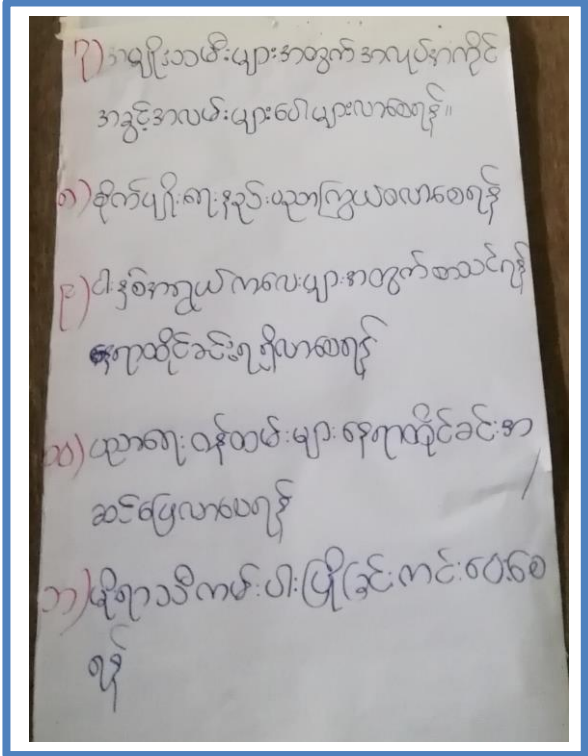 ၇) အမျိုးသမီးများအတွက် အလုပ်အကိုင်
အခွင့်အလမ်းများပေါများလာစေရန်။
၈) စိုက်ပျိုးရေးနည်းပညာကြွယ်ဝလာစေရန်
၉) ငါးနှစ်အရွယ်ကလေးများအတွက်စာသင်ရန်
နေရာထိုင်ခင်းရရှိလာစေရန်
၁၀) ပညာရေးဝန်ထမ်းများနေရာထိုင်ခင်းအ
ဆင်ပြေလာစေရန်
၁၁) မိုရာသီကမ်းပါးပြိုခြင်းကင်းဝေးစေ
ရန်